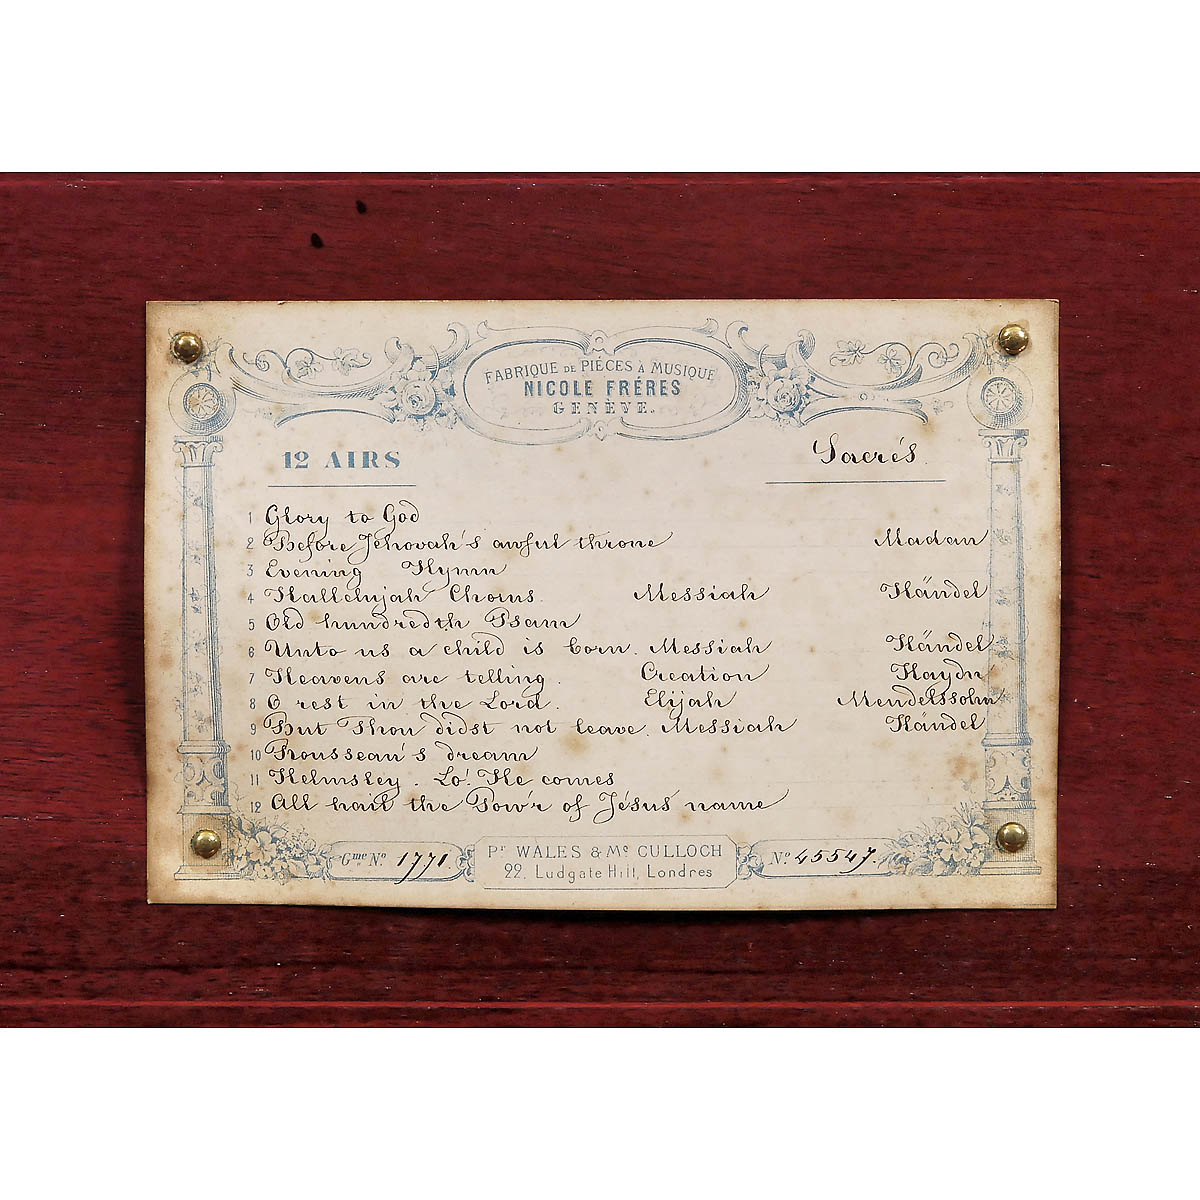 FABRIQUE DE PIÉCES À MUSIQUE
NICOLE FRÉRES
GENÈVE.
12 AIRS Sacrés.
1 Glory to God
2 Before Jehovah's awful throne Madan
3 Evening Hymn
4 Hallelujah Chorus. Messiah Händel
5 Old hundredth Psam
6 Unto us a child is born. Messiah Händel
7 Heavens are telling. Creation Haydn
8 O rest in the Lord. Elijah Mendelssohn
9 But Thou didst not leave. Messiah Händel
10 Rousseau's dream
11 Helmsley. Lo! He comes
12 All hail the Pow'r of Jésus' name
Gme No. 1771. Pr. WALES & Mc. CULLOCH No. 45547.
22, Ludgate Hill, Londres